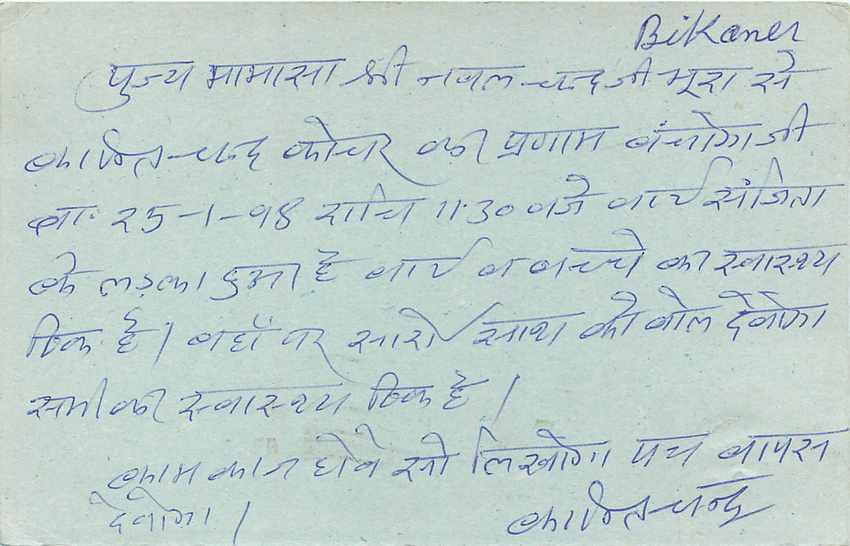 Bikaner
पुज्य मामासा श्री नवल चन्द जी भूरा से
कान्ति चन्द कोचर का प्रणाम बंचोगाजी
ता. 25-1-98 रात्रि 11.30 बजे बाई संजिता
के लड़का हुआ है बाई व बच्चे का स्वास्थ्य
ठिक है। वहाँ पर सारो साथ को बोल देवोगा
सभी का स्वास्थ्य ठिक है।
काम काज होवे सो लिखोगा पत्र वापस
देवोगा।
चन्द